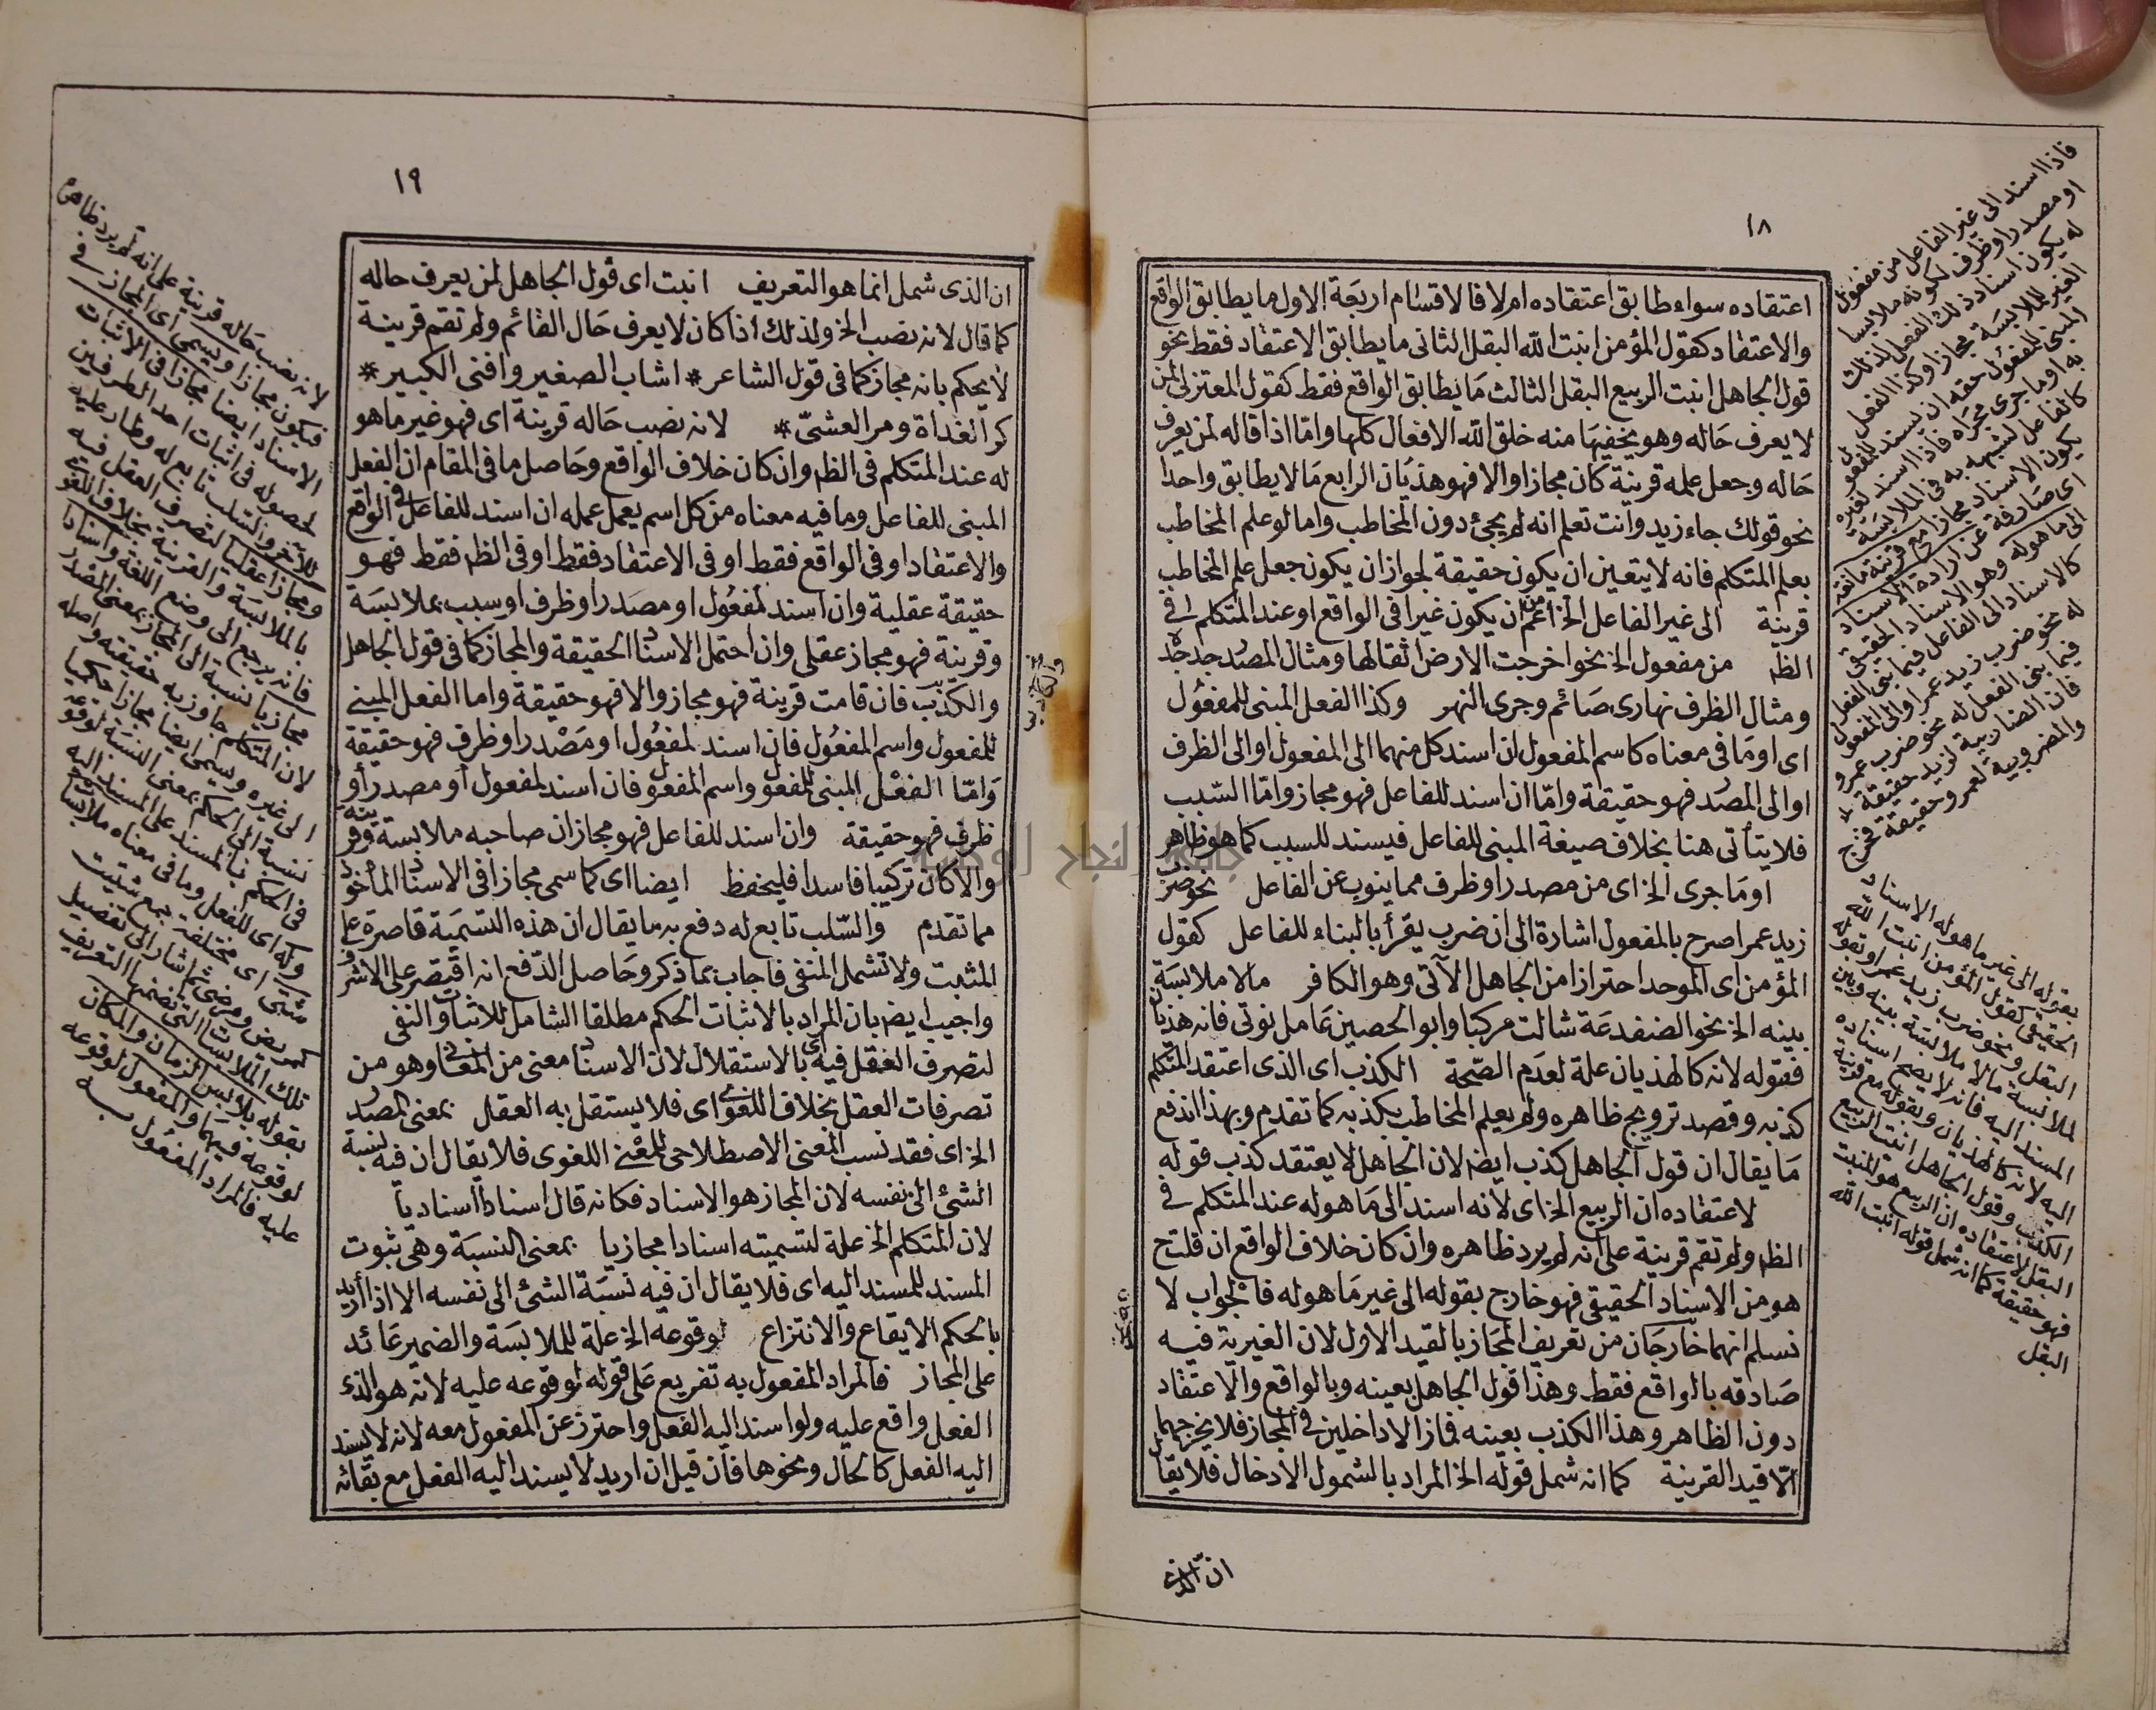 ١٨
اعتقاده سواء طابق اعتقاده ام لا فالاقسام اربعة الاول ما يطابق الواقع
والاعتقاد كقول المؤمن انبت الله البقل الثانى ما يطابق الاعتقاد فقط نحو
قول الجاهل انبت الربيع البقل الثالث ما يطابق الواقع فقط كقول المعتزلى لمن
لا يعرف حاله وهو يخفيها منه خلق الله الافعال كلها واما اذا قاله لمن يعرف
حاله وجعل علمه قرينة كان مجازا والا فهو هذيان الرابع ما لا يطابق واحدا
نحو قولك جاء زيد وانت تعلم انه لم يجئ دون المخاطب واما لو علم المخاطب
بعلم المتكلم فانه لا يتعين ان يكون حقيقة لجواز ان يكون جعل علم المخاطب
قرينة الى غير الفاعل الخ اعم من ان يكون غيرا فى الواقع او عند المتكلم فى
الظ من مفعول الخ نحو اخرجت الارض اثقالها ومثال المصدر جد جده
ومثال الظرف نهاره صائم وجرى النهر وكذا الفعل المبنى للمفعول
اى او ما فى معناه كاسم المفعول ان اسند كل منهما الى المفعول او الى الظرف
او الى المصدر فهو حقيقة واما ان اسند للفاعل فهو مجاز واما السبب
فلا يتأتى هنا بخلاف صيغة المبنى للفاعل فيسند للسبب كما هو ظاهر
او ما جرى الخ اى من مصدر او ظرف مما ينوب عن الفاعل نحو ضرب
زيد عمرا صرح بالمفعول اشارة الى ان ضرب يقرأ بالبناء للفاعل كقول
المؤمن اى الموحد احترازا من الجاهل الآتى وهو الكافر ما لا ملابسة
بينه الخ نحو الضفدعة شالت مركبا وابو الحصين عامل نوتى فانه هذيان
فقوله لانه كالهذيان علة لعدم الصحة الكذب اى الذى اعتقد المتكلم
كذبه وقصد ترويج ظاهره ولم يعلم المخاطب بكذبه كما تقدم وبهذا اندفع
ما يقال ان قول الجاهل كذب ايض لان الجاهل لا يعتقد كذب قوله
لاعتقاده ان الربيع الخ اى لانه اسند الى ما هو له عند المتكلم فى
الظ ولم تقم قرينة على انه لم يرد ظاهره وان كان خلاف الواقع ان قلت ح
هو من الاسناد الحقيقى فهو خارج بقوله الى غير ما هو له فالجواب لا
نسلم انهما خارجان من تعريف المجاز بالقيد الاول لان الغيرية فيه
صادقه بالواقع فقط وهذا قول الجاهل بعينه وبالواقع والاعتقاد
دون الظاهر وهذا الكذب بعينه فما زالا داخلين فى المجاز فلا يخرجهما
الا قيد القرينة كما انه شمل قوله الخ المراد بالشمول الادخال فلا يقال
ان الذى
فاذا اسند الى غير الفاعل من مفعول
او مصدر او ظرف لكونه ملابسا
له يكون اسناد ذلك الفعل لذلك
الغير للملابسة مجازا وكذا الفعل
المبنى للمفعول حقه ان يسند للمفعول
به او ما جرى مجراه فاذا اسند لغيره
كالفاعل لشبهه به فى الملابسة
يكون الاسناد مجازا مع قرينة مانعة
اى صارفة عن ارادة الاسناد
الى ما هو له وهو الاسناد الحقيقى
كالاسناد الى الفاعل فيما بنى الفعل
له نحو ضرب زيد عمرا والى المفعول
فيما بنى الفعل له نحو ضرب عمرو
فان الضاربية لزيد حقيقة
والمضروبية لعمرو حقيقة فخرج
بقوله الى غير ما هو له الاسناد
الحقيقى كقول المؤمن انبت الله
البقل ونحو ضرب زيد عمرا وبقوله
لملابسة ما لا ملابسة بينه وبين
المسند اليه فانه لا يصح اسناده
اليه لانه كالهذيان وبقوله مع قرينة
الكذب وقول الجاهل انبت الربيع
البقل لاعتقاده ان الربيع هو المنبت
فهو حقيقة كما انه شمل قوله انبت الله
البقل
١٩
ان الذى شمل انما هو التعريف انبت اى قول الجاهل لمن يعرف حاله
كما قال لانه نصب الخ ولذلك اذا كان لا يعرف حال القائم ولم تقم قرينة
لا يحكم بانه مجاز كما فى قول الشاعر * اشاب الصغير وافنى الكبير *
كر الغداة ومر العشى * لانه نصب حاله قرينة اى فهو غير ما هو
له عند المتكلم فى الظ وان كان خلاف الواقع وحاصل ما فى المقام ان الفعل
المبنى للفاعل وما فيه معناه من كل اسم يعمل عمله ان اسند للفاعل فى الواقع
والاعتقاد او فى الواقع فقط او فى الاعتقاد فقط او فى الظ فقط فهو
حقيقة عقلية وان اسند لمفعول او مصدر او ظرف او سبب بملابسة
وقرينة فهو مجاز عقلى وان احتمل الاسناد الحقيقة والمجاز كما فى قول الجاهل
والكذب فان قامت قرينة فهو مجاز والا فهو حقيقة واما الفعل المبنى
للمفعول واسم المفعول فان اسند لمفعول او مصدر او ظرف فهو حقيقة
واما الفعل المبنى للمفعول واسم المفعول فان اسند لمفعول او مصدر او
ظرف فهو حقيقة وان اسند للفاعل فهو مجاز ان صاحبه ملابسة وقرينة
والا كان تركيبا فاسدا فليحفظ ايضا اى كما سمى مجازا فى الاسناد المأخوذ
مما تقدم والسلب تابع له دفع به ما يقال ان هذه التسمية قاصرة على
المثبت ولا تشمل المنفى فاجاب بما ذكر وحاصل الدفع انه اقتصر على الاشرف
واجيب ايض بان المراد بالاثبات الحكم مطلقا الشامل للاثبات والنفى
لتصرف العقل فيه اى بالاستقلال لان الاسناد معنى من المعانى وهو من
تصرفات العقل بخلاف اللغوى اى فلا يستقل به العقل بمعنى المصدر
الخ اى فقد نسب المعنى الاصطلاحى للمعنى اللغوى فلا يقال ان فيه نسبة
الشئ الى نفسه لان المجاز هو الاسناد فكانه قال اسنادا اسناديا
لان المتكلم الخ علة لتسميته اسنادا مجازيا بمعنى النسبة وهى ثبوت
المسند للمسند اليه اى فلا يقال ان فيه نسبة الشئ الى نفسه الا اذا اريد
بالحكم الايقاع والانتزاع لوقوعه الخ علة للملابسة والضمير عائد
على المجاز فالمراد المفعول به تفريع على قوله لوقوعه عليه لانه هو الذى
الفعل واقع عليه ولو اسند اليه الفعل واحترز عن المفعول معه لانه لا يسند
اليه الفعل كالحال ونحوها فان قيل ان اريد لا يسند اليه الفعل مع بقائه
لانه نصب حاله قرينة على انه لم يرد ظاهره
فيكون مجازا ويسمى اى المجاز فى
الاسناد ايضا مجازا فى الاثبات
لحصوله فى اثبات احد الطرفين
للآخر والسلب تابع له وطار عليه
ومجازا عقليا لتصرف العقل فيه
بالملابسة والقرينة بخلاف اللغوى
فانه يرجع الى وضع اللغة واسنادا
مجازيا نسبة الى المجاز بمعنى المصدر
لان المتكلم جاوز به حقيقته واصله
الى غيره وسمى ايضا مجازا حكميا
نسبة الى الحكم بمعنى النسبة لوقوعه
فى الحكم بالمسند على المسند اليه
وله اى للفعل وما فى معناه ملابسات
شتى اى مختلفة جمع شتيت
كمريض ومرضى ثم اشار الى تفصيل
تلك الملابسات التى تضمنها التعريف
بقوله يلابس الزمان والمكان
لوقوعه فيهما والمفعول لوقوعه
عليه فالمراد المفعول به